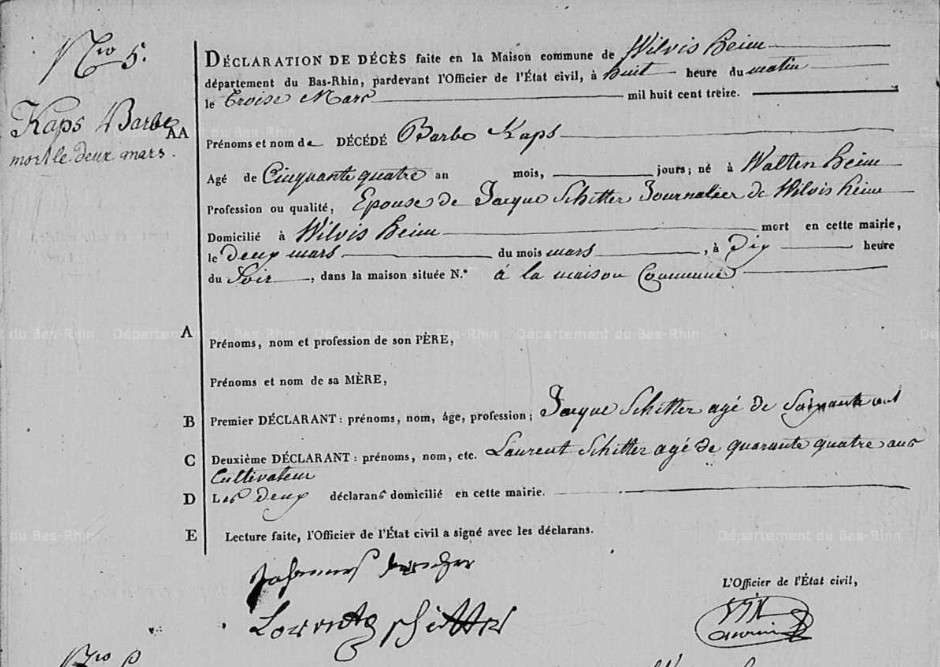 Nro 5.
Kaps Barbe
mort le deux mars.
AA
DÉCLARATION DE DÉCÈS faite en la Maison commune de Wilvisheim
département du Bas-Rhin, pardevant l'Officier de l'État civil, à huit heure du matin
le Troise Mars mil huit cent treize.
Prénoms et nom de DÉCÉDÉ Barbe Kaps
Agé de Cinquante quatre an mois, jours; né à Waltenheim
Profession ou qualité, Epouse de Jacque Schitter Journalier de Wilvisheim
Domicilié à Wilvisheim mort en cette mairie,
le deux mars du mois mars, à Dix heure
du Soir, dans la maison située N.° à la maison Commune
A Prénoms, nom et profession de son PÈRE,
Prénoms et nom de sa MÈRE,
B Premier DÉCLARANT : prénoms, nom, âge, profession; Jacque Schitter agé de Soixante ans
C Deuxième DÉCLARANT : prénoms, nom, etc. Laurent Schitter agé de quarante quatre ans
Cultivateur
D Les deux déclarans domicilié en cette mairie.
E Lecture faite, l'Officier de l'État civil a signé avec les déclarans.
L'Officier de l'État civil,
Lorentz Schitter
Département du Bas-Rhin